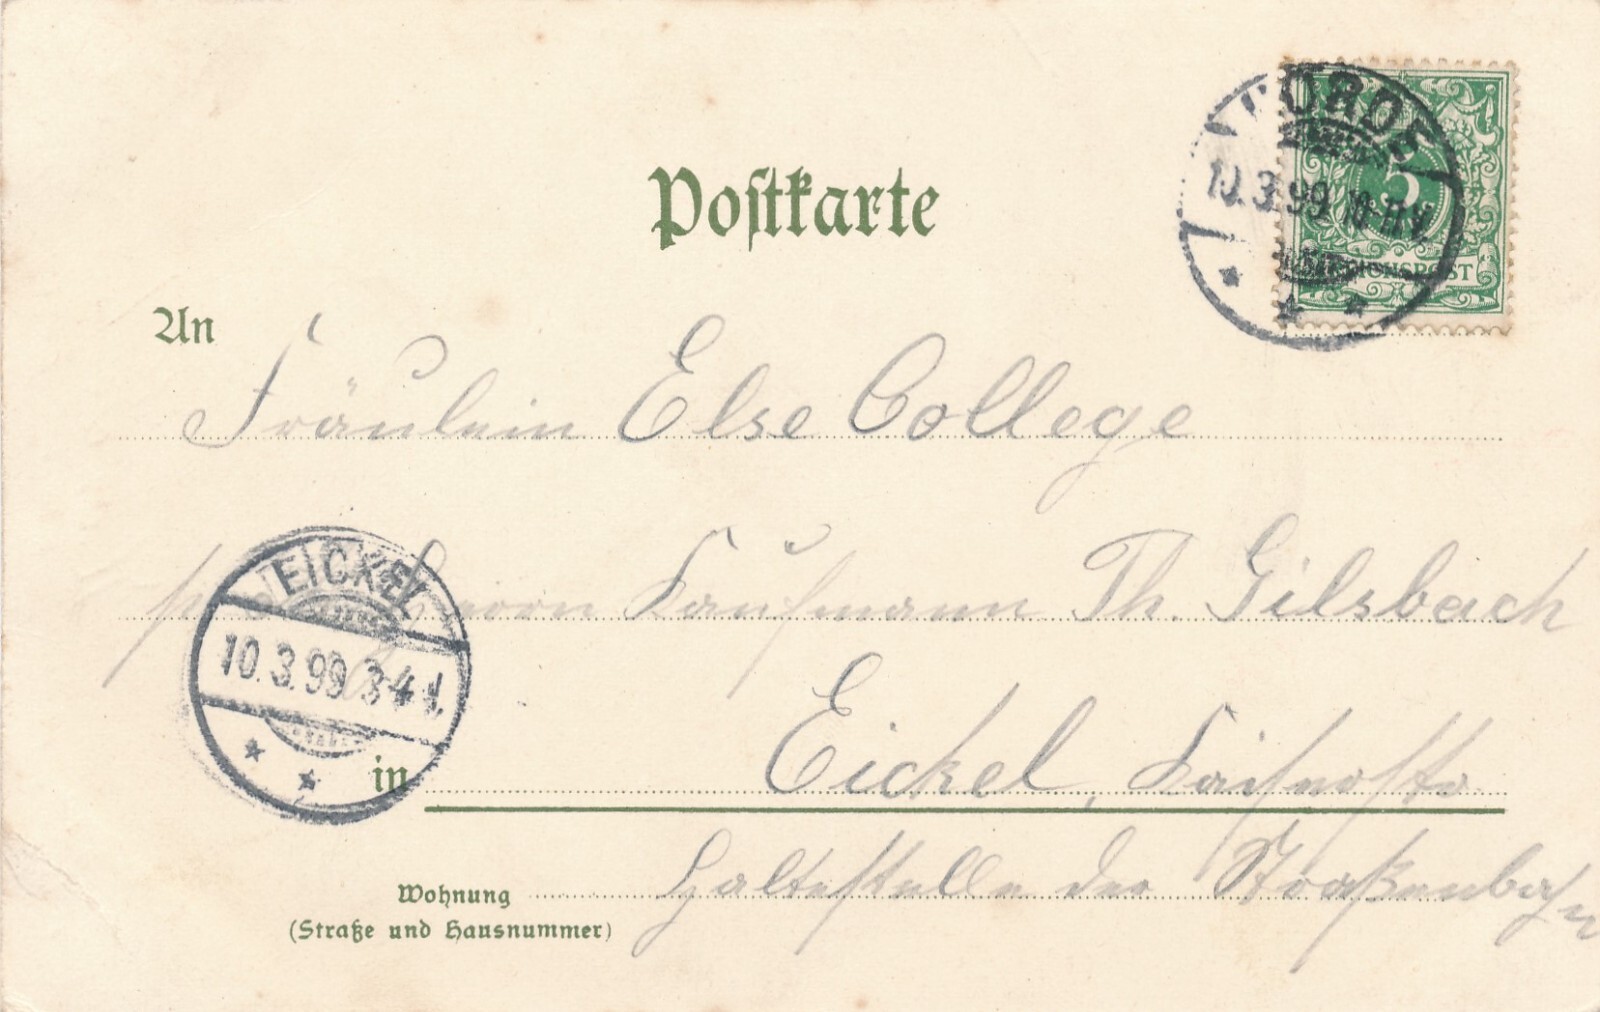 Postkarte
HÖRDE
10.3.99. 10-11 V.
5
REICHSPOST
An
Fräulein Else College
Herrn Kaufmann Th. Gilsbach
EICKEL
10.3.99 3-4
in
Eickel, Kaiserstr
Wohnung
Haltestelle der Straßenbahn
(Straße und Hausnummer)